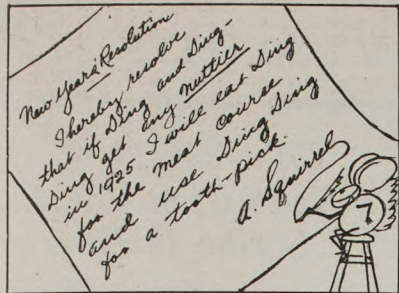 New Year's Resolution
I hereby resolve
that if Ding and Ding-
Ding get any nuttier
in 1925 I will eat Ding
for the meat course
and use Ding Ding
for a tooth-pick.
A. Squirrel